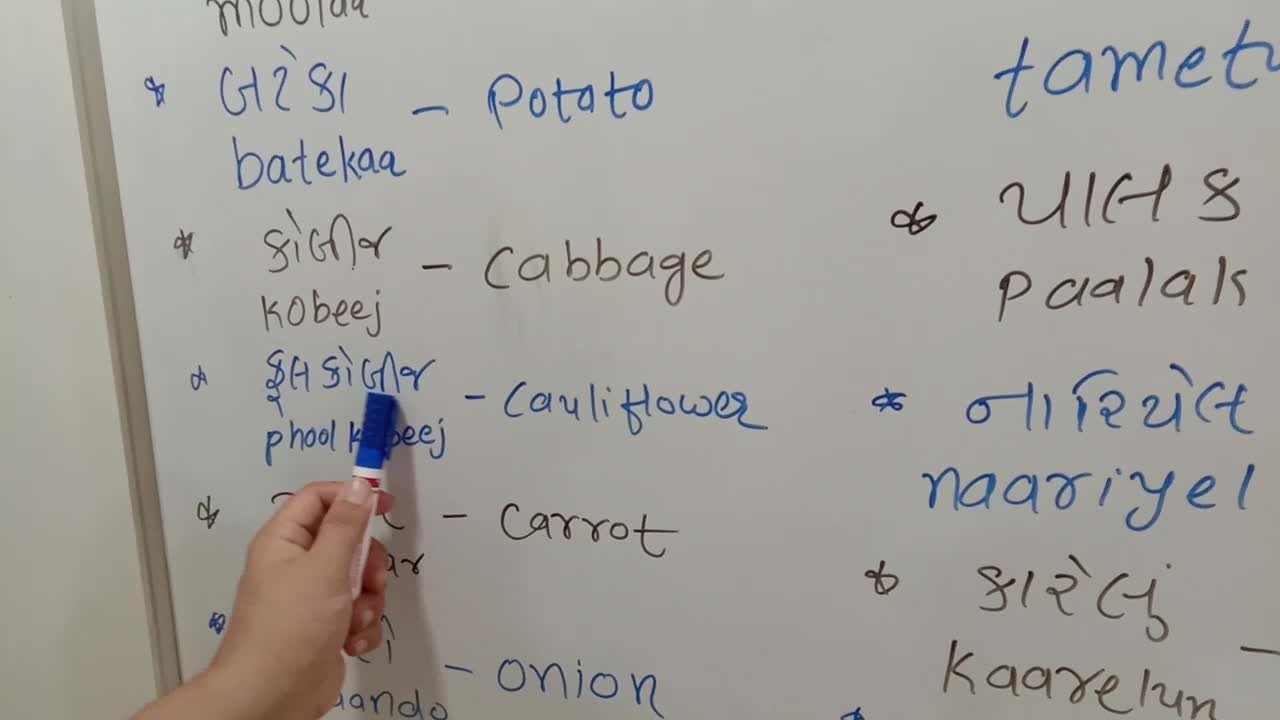 બટેકા - Potato
batekaa
કોબીજ - Cabbage
kobeej
ફુલકોબીજ - Cauliflower
phool kobeej
- Carrot
- onion
tamet
પાલક
paalak
નારિયેલ
naariyel
કારેલું -
kaarelun